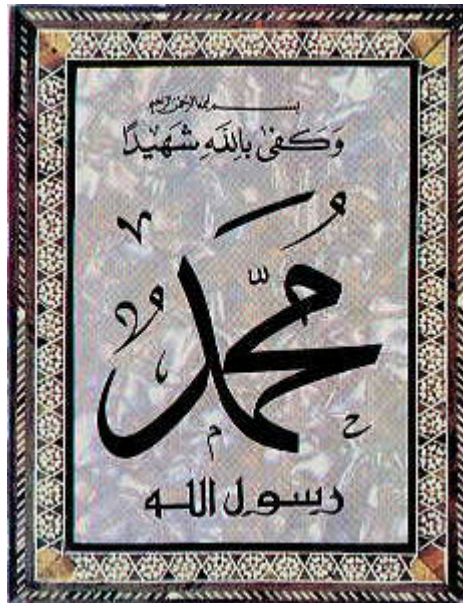 بسم الله الرحمن الرحيم
وَكَفَىٰ بِاللَّهِ شَهِيدًا
مُحَمَّدٌ
رسول الله